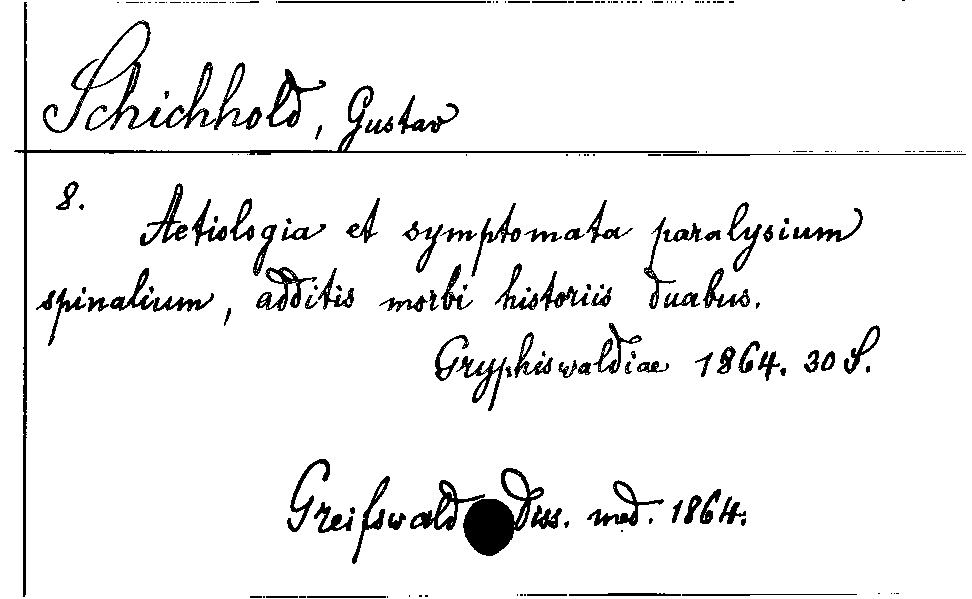 Schichhold, Gustav
8.
Aetiologia et symptomata paralysium
spinalium, additis morbi historiis duabus.
Gryphiswaldiae 1864. 30 S.
Greifswald Diss. med. 1864.